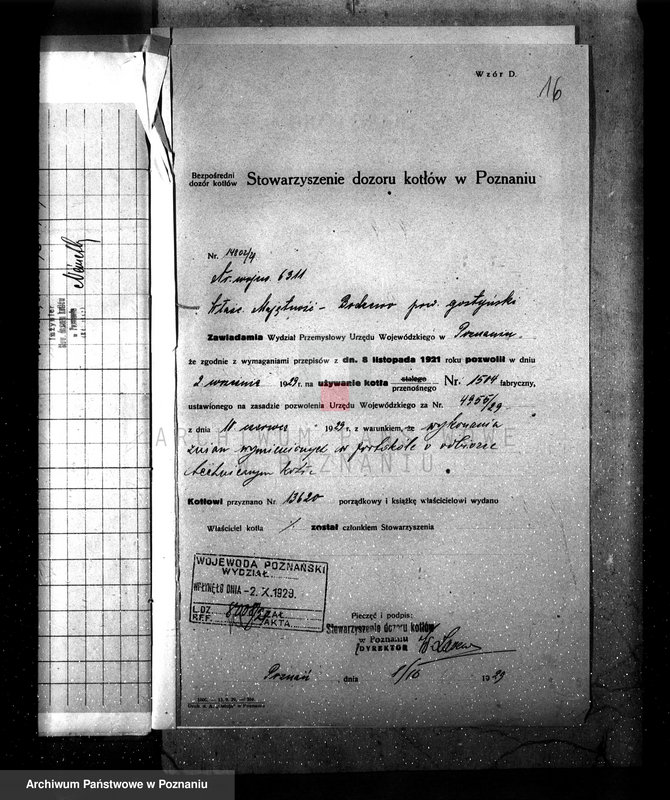 Wzór D.
16
Bezpośredni
dozór kotłów
Stowarzyszenie dozoru kotłów w Poznaniu
Nr. 14202/4
Nr. wojew. 6311
Własc. Majętność - Bodzewo pow. gostyński
Zawiadamia Wydział Przemysłowy Urzędu Wojewódzkiego w Poznaniu.
że zgodnie z wymaganiami przepisów z dn. 8 listopada 1921 roku pozwolił w dniu
2 września 1929 r. na używanie kotła stałego
przenośnego Nr. 1504 fabryczny,
ustawionego na zasadzie pozwolenia Urzędu Wojewódzkiego za Nr. 4956/29
z dnia 11 czerwca 1929 r. z warunkiem, że wykonania
zmian wymienionych w protokóle o odbiorze
technicznym kotła
Kotłowi przyznano Nr. 13620 porządkowy i książkę właścicielowi wydano
Właściciel kotła został członkiem Stowarzyszenia
WOJEWODA POZNAŃSKI
WYDZIAŁ
WPŁYNĘŁO DNIA -2. X. 1929.
L. DZ.
REF. AKTA
Pieczęć i podpis:
Stowarzyszenie dozoru kotłów
w Poznaniu
DYREKTOR
Poznań dnia 1/10 1929
Inżynier
Stow. dozoru kotłów
w Poznaniu
ARCHIWUM PAŃSTWOWE
W POZNANIU
Archiwum Państwowe w Poznaniu